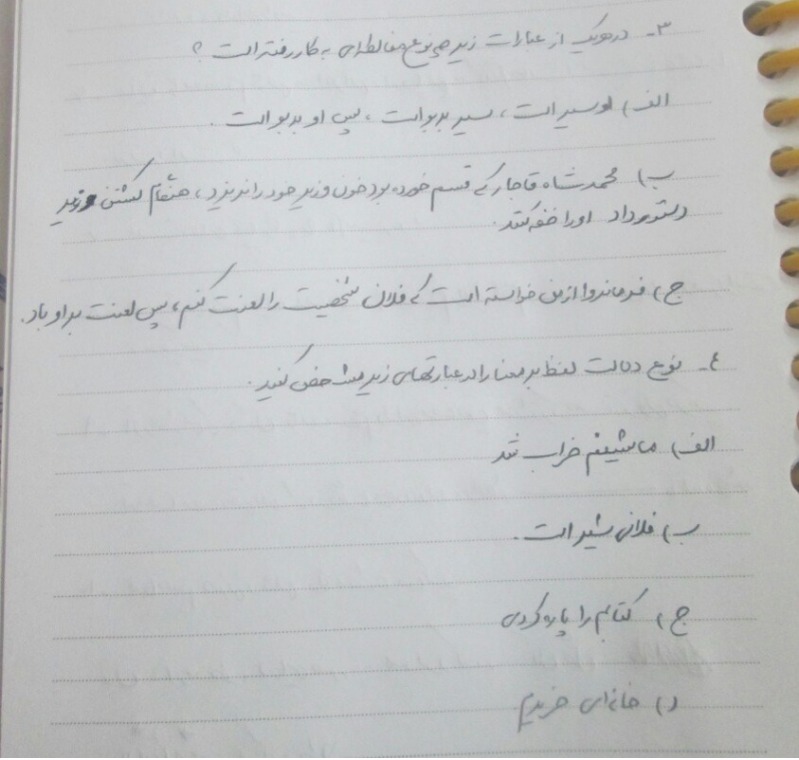 ۳- در هر یک از عبارات زیر چه نوع مغالطه‌ای به کار رفته است ؟
الف) او سیر است ، سیر بدبو است ، پس او بدبو است .
ب) محمد شاه قاجار که قسم خورده بود خون وزیر خود را نریزد ، هنگام کشتن وزیر
دستور داد او را خفه کنند.
ج) فرمانروا از من خواسته است که فلان شخصیت را لعنت کنم ، پس لعنت بر او باد.
٤- نوع دلالت لفظ بر معنا را در عبارتهای زیر مشخص کنید.
الف) ماشینم خراب شد
ب) فلانی شیر است.
ج) کتابم را پاره کردی
د) خانه‌ای خریدم